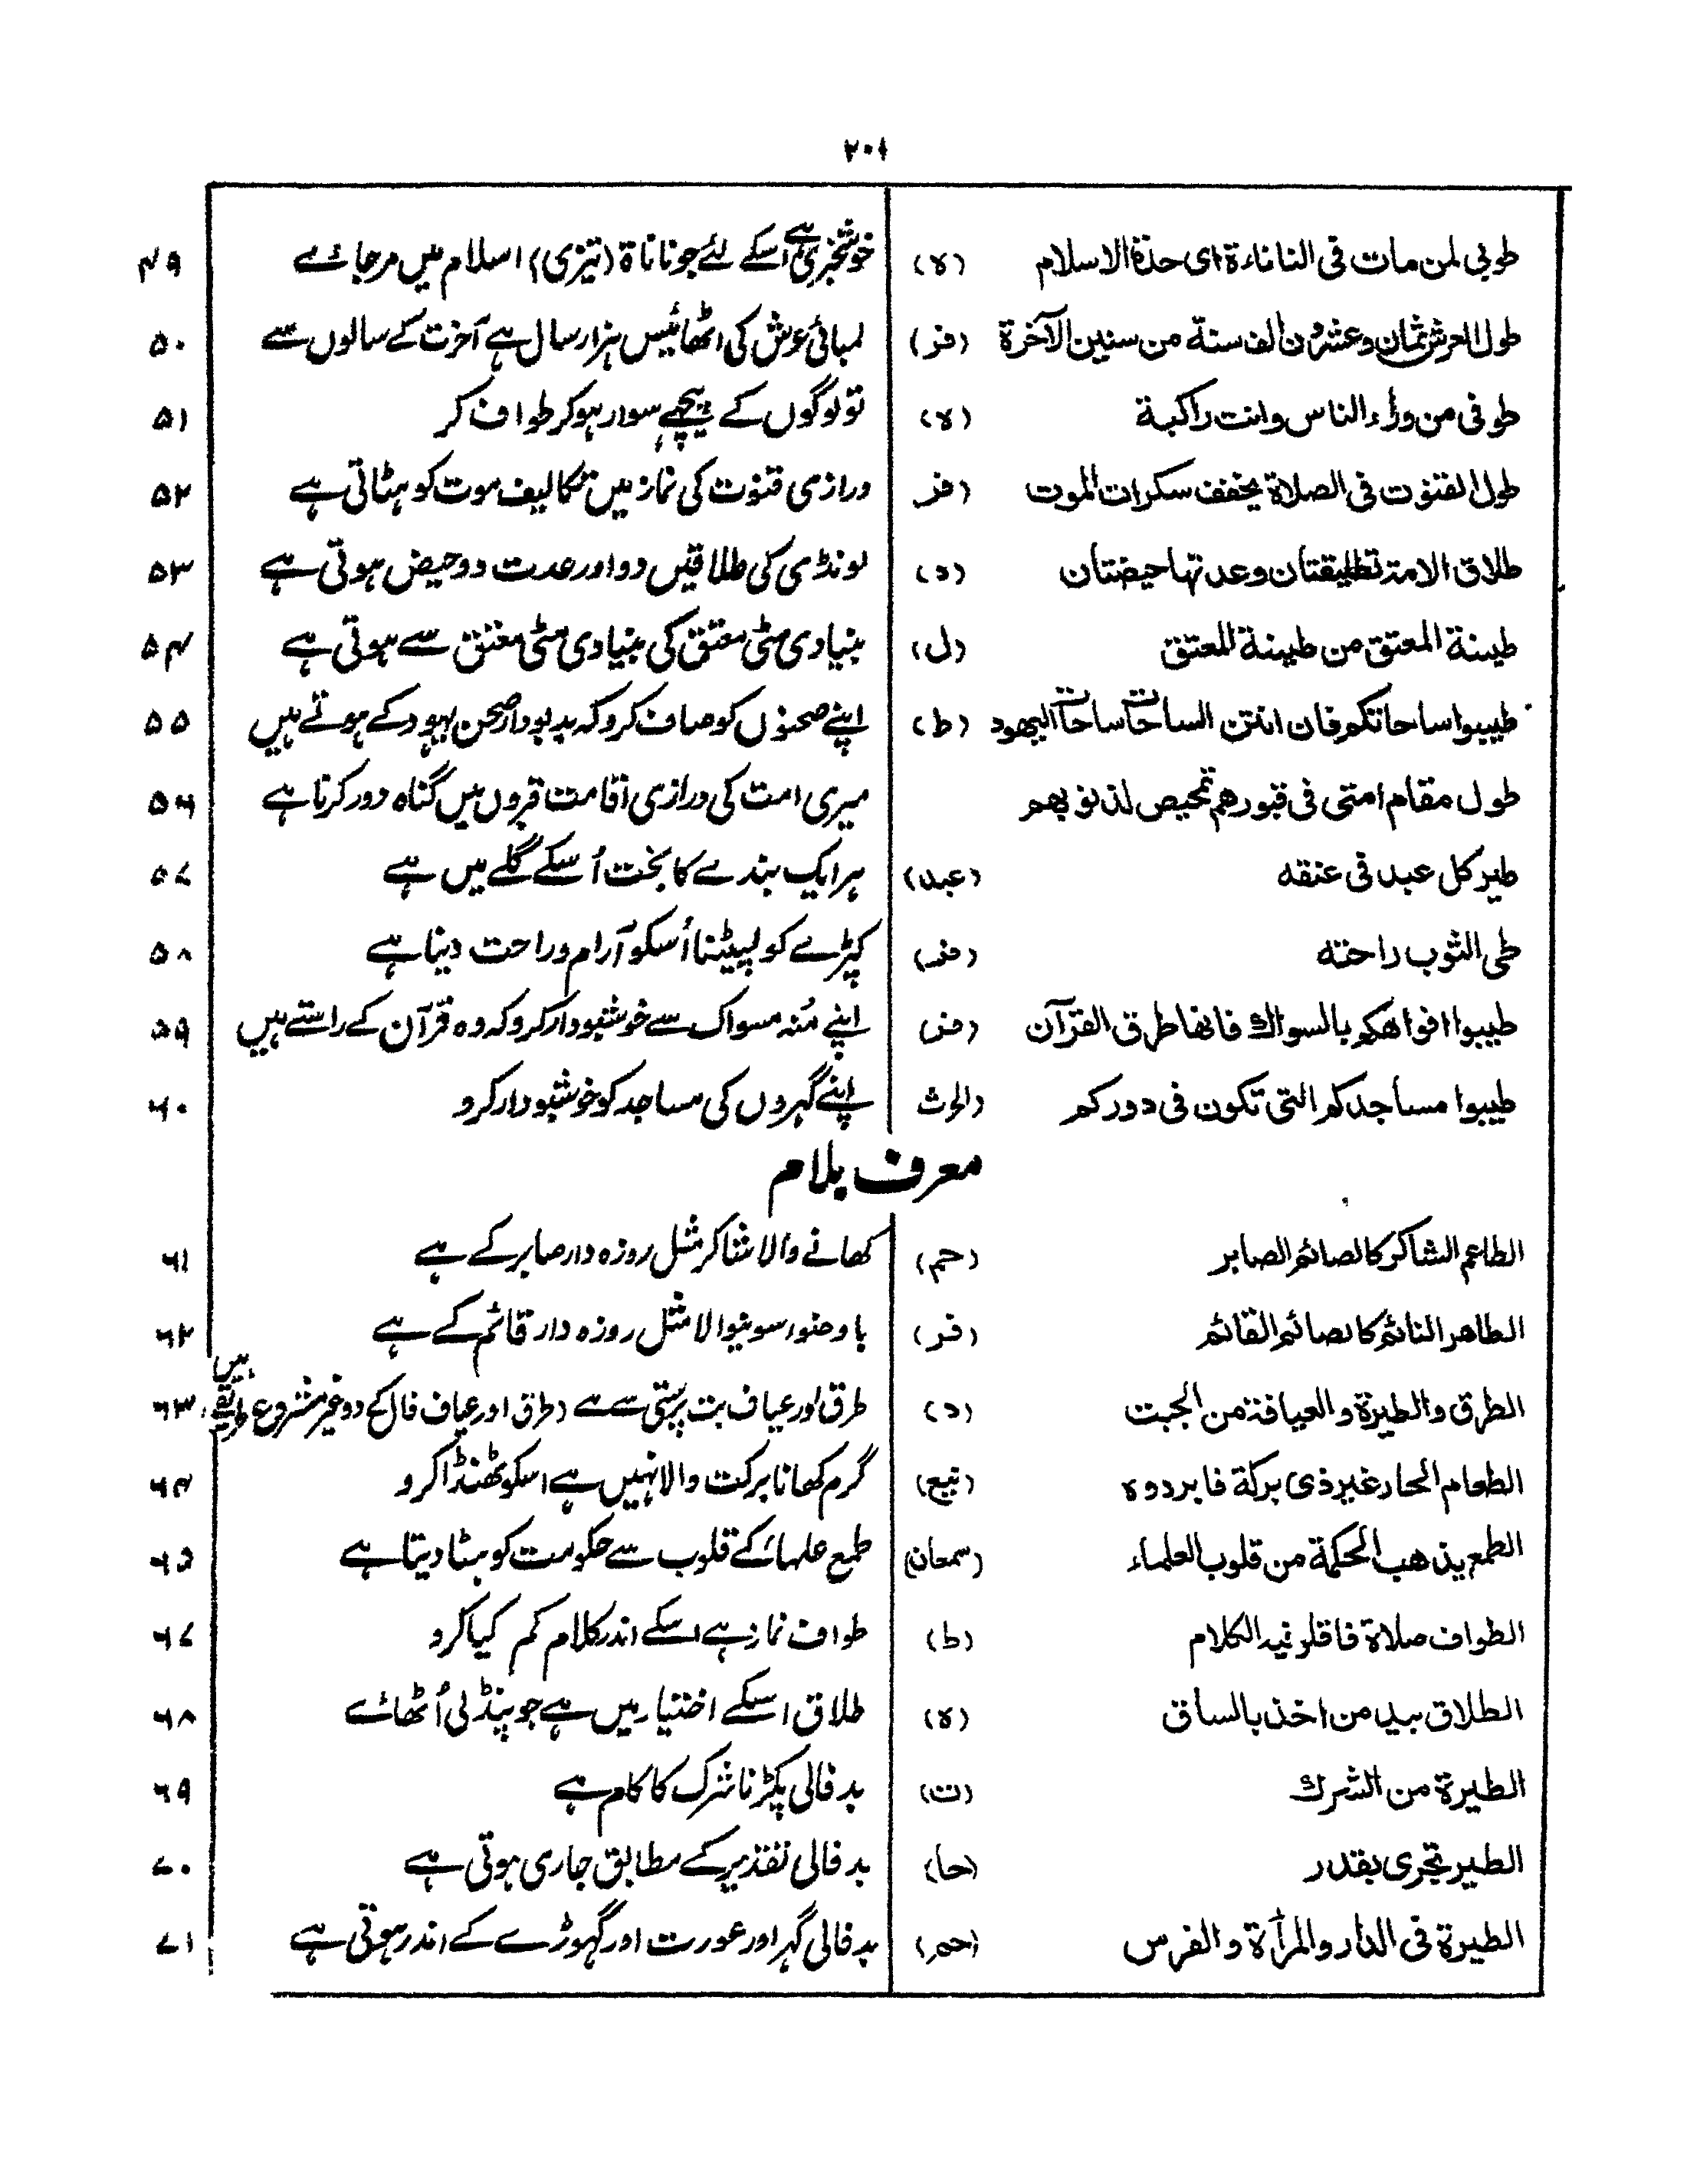 ۲۰۱
طوبی لمن مات فی النا ناءة ای حدة الاسلام (ہ) خوشخبری ہے اسکے لئے جو نا ناة (تیزی) اسلام میں مرجائے ۴۹
طول العرش ثمان وعشرون الف سنة من سنین الآخرة (فر) لمبائی عرش کی اٹھائیس ہزار سال ہے آخرت کے سالوں سے ۵۰
طوفی من وراء الناس وانت راکبة (ہ) تو لوگوں کے پیچھے سوار ہوکر طواف کر ۵۱
طول القنوت فی الصلاة یخفف سکرات الموت (فر) درازی قنوت کی نماز میں تکالیف موت کو ہٹاتی ہے ۵۲
طلاق الامة تطلیقتان وعدتها حیضتان (د) لونڈی کی طلاقیں دو اور عدت دو حیض ہوتی ہے ۵۳
طینة المعتق من طینة المعتق (ل) بنیادی مٹی معتق کی بنیادی مٹی معتق سے ہوتی ہے ۵۴
طیبوا ساحاتکم فان انتن الساحات ساحات الیهود (ط) اپنے صحنوں کو صاف کرو کہ بدبودار صحن یہود کے ہوتے ہیں ۵۵
طول مقام امتی فی قبورهم تمحیص لذنوبهم میری امت کی درازی اقامت قبروں میں گناہ دور کرتا ہے ۵۶
طیر کل عبد فی عنقه (عبد) ہر ایک بندے کا بخت اُسکے گلے میں ہے ۵۷
طی الثوب راحته (فر) کپڑے کو لپیٹنا اُسکو آرام وراحت دینا ہے ۵۸
طیبوا افواهکم بالسواك فانها طرق القرآن (فر) اپنے مُنہ مسواک سے خوشبودار کرو کہ وہ قرآن کے راستے ہیں ۵۹
طیبوا مساجدکم التی تکون فی دورکم (الحرث اپنے گہروں کی مساجد کو خوشبودار کرو ۶۰
معرف بلام
الطاعم الشاکر کالصائم الصابر (حم) کھانے والا شاکر مثل روزہ دار صابر کے ہے ۶۱
الطاهر النائم کالصائم القائم (فر) باوضوء سونیوالا مثل روزہ دار قائم کے ہے ۶۲
الطرق والطیرة والعیافة من الجبت (د) طرق اور عیاف بت پرستی سے ہے (طرق اور عیاف فال کے دو غیر مشروع طریقے ہیں ۶۳
الطعام الحار غیر ذی برکة فابردوہ (نبیع) گرم کھانا برکت والا نہیں ہے اسکو ٹھنڈا کرو ۶۴
الطمع یذهب الحکمة من قلوب العلماء (سمعان) طمع علماء کے قلوب سے حکومت کو ہٹا دیتا ہے ۶۵
الطواف صلاة فاقلو فیه الکلام (ط) طواف نماز ہے اسکے اندر کلام کم کیا کرو ۶۷
الطلاق بید من اخذ بالساق (ہ) طلاق اسکے اختیار میں ہے جو پنڈلی اُٹھائے ۶۸
الطیرة من الشرك (ت) بدفالی پکڑنا شرک کا کام ہے ۶۹
الطیر تجری بقدر (حا) بدفالی تقدیر کے مطابق جاری ہوتی ہے ۷۰
الطیرة فی الدار والمرأة والفرس (حم) بدفالی گہر اور عورت اور گہوڑے کے اندر ہوتی ہے ۷۱